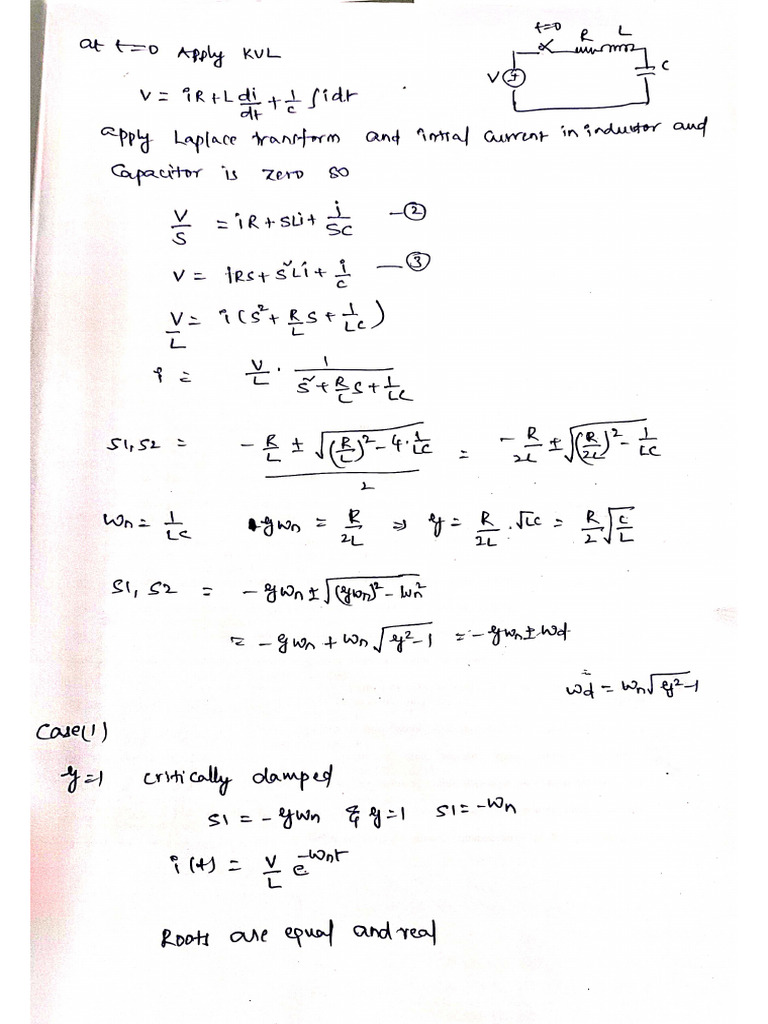 at t=0 Apply KVL
t=0 R L
V C
V = iR + L di/dt + 1/C ∫idt
apply Laplace transform and intial current in inductor and
Capacitor is zero so
V/S = iR + SLi + i/SC —②
V = iRS + S²Li + i/C —③
V/L = i(S² + R/L S + 1/LC)
i = V/L · 1/(S² + R/L S + 1/LC)
S1, S2 = (-R/L ± √((R/L)² - 4·1/LC))/2 = -R/2L ± √((R/2L)² - 1/LC)
Wn = 1/LC ξWn = R/2L ⇒ ξ = R/2L · √LC = R/2 √(C/L)
S1, S2 = -ξWn ± √((ξWn)² - Wn²)
= -ξWn + Wn √(ξ²-1) = -ξWn ± Wd
Wd = Wn√(ξ²-1)
Case(1)
ξ=1 critically damped
S1 = -ξWn & ξ=1 S1 = -Wn
i(t) = V/L e^(-Wnt)
Roots are equal and real